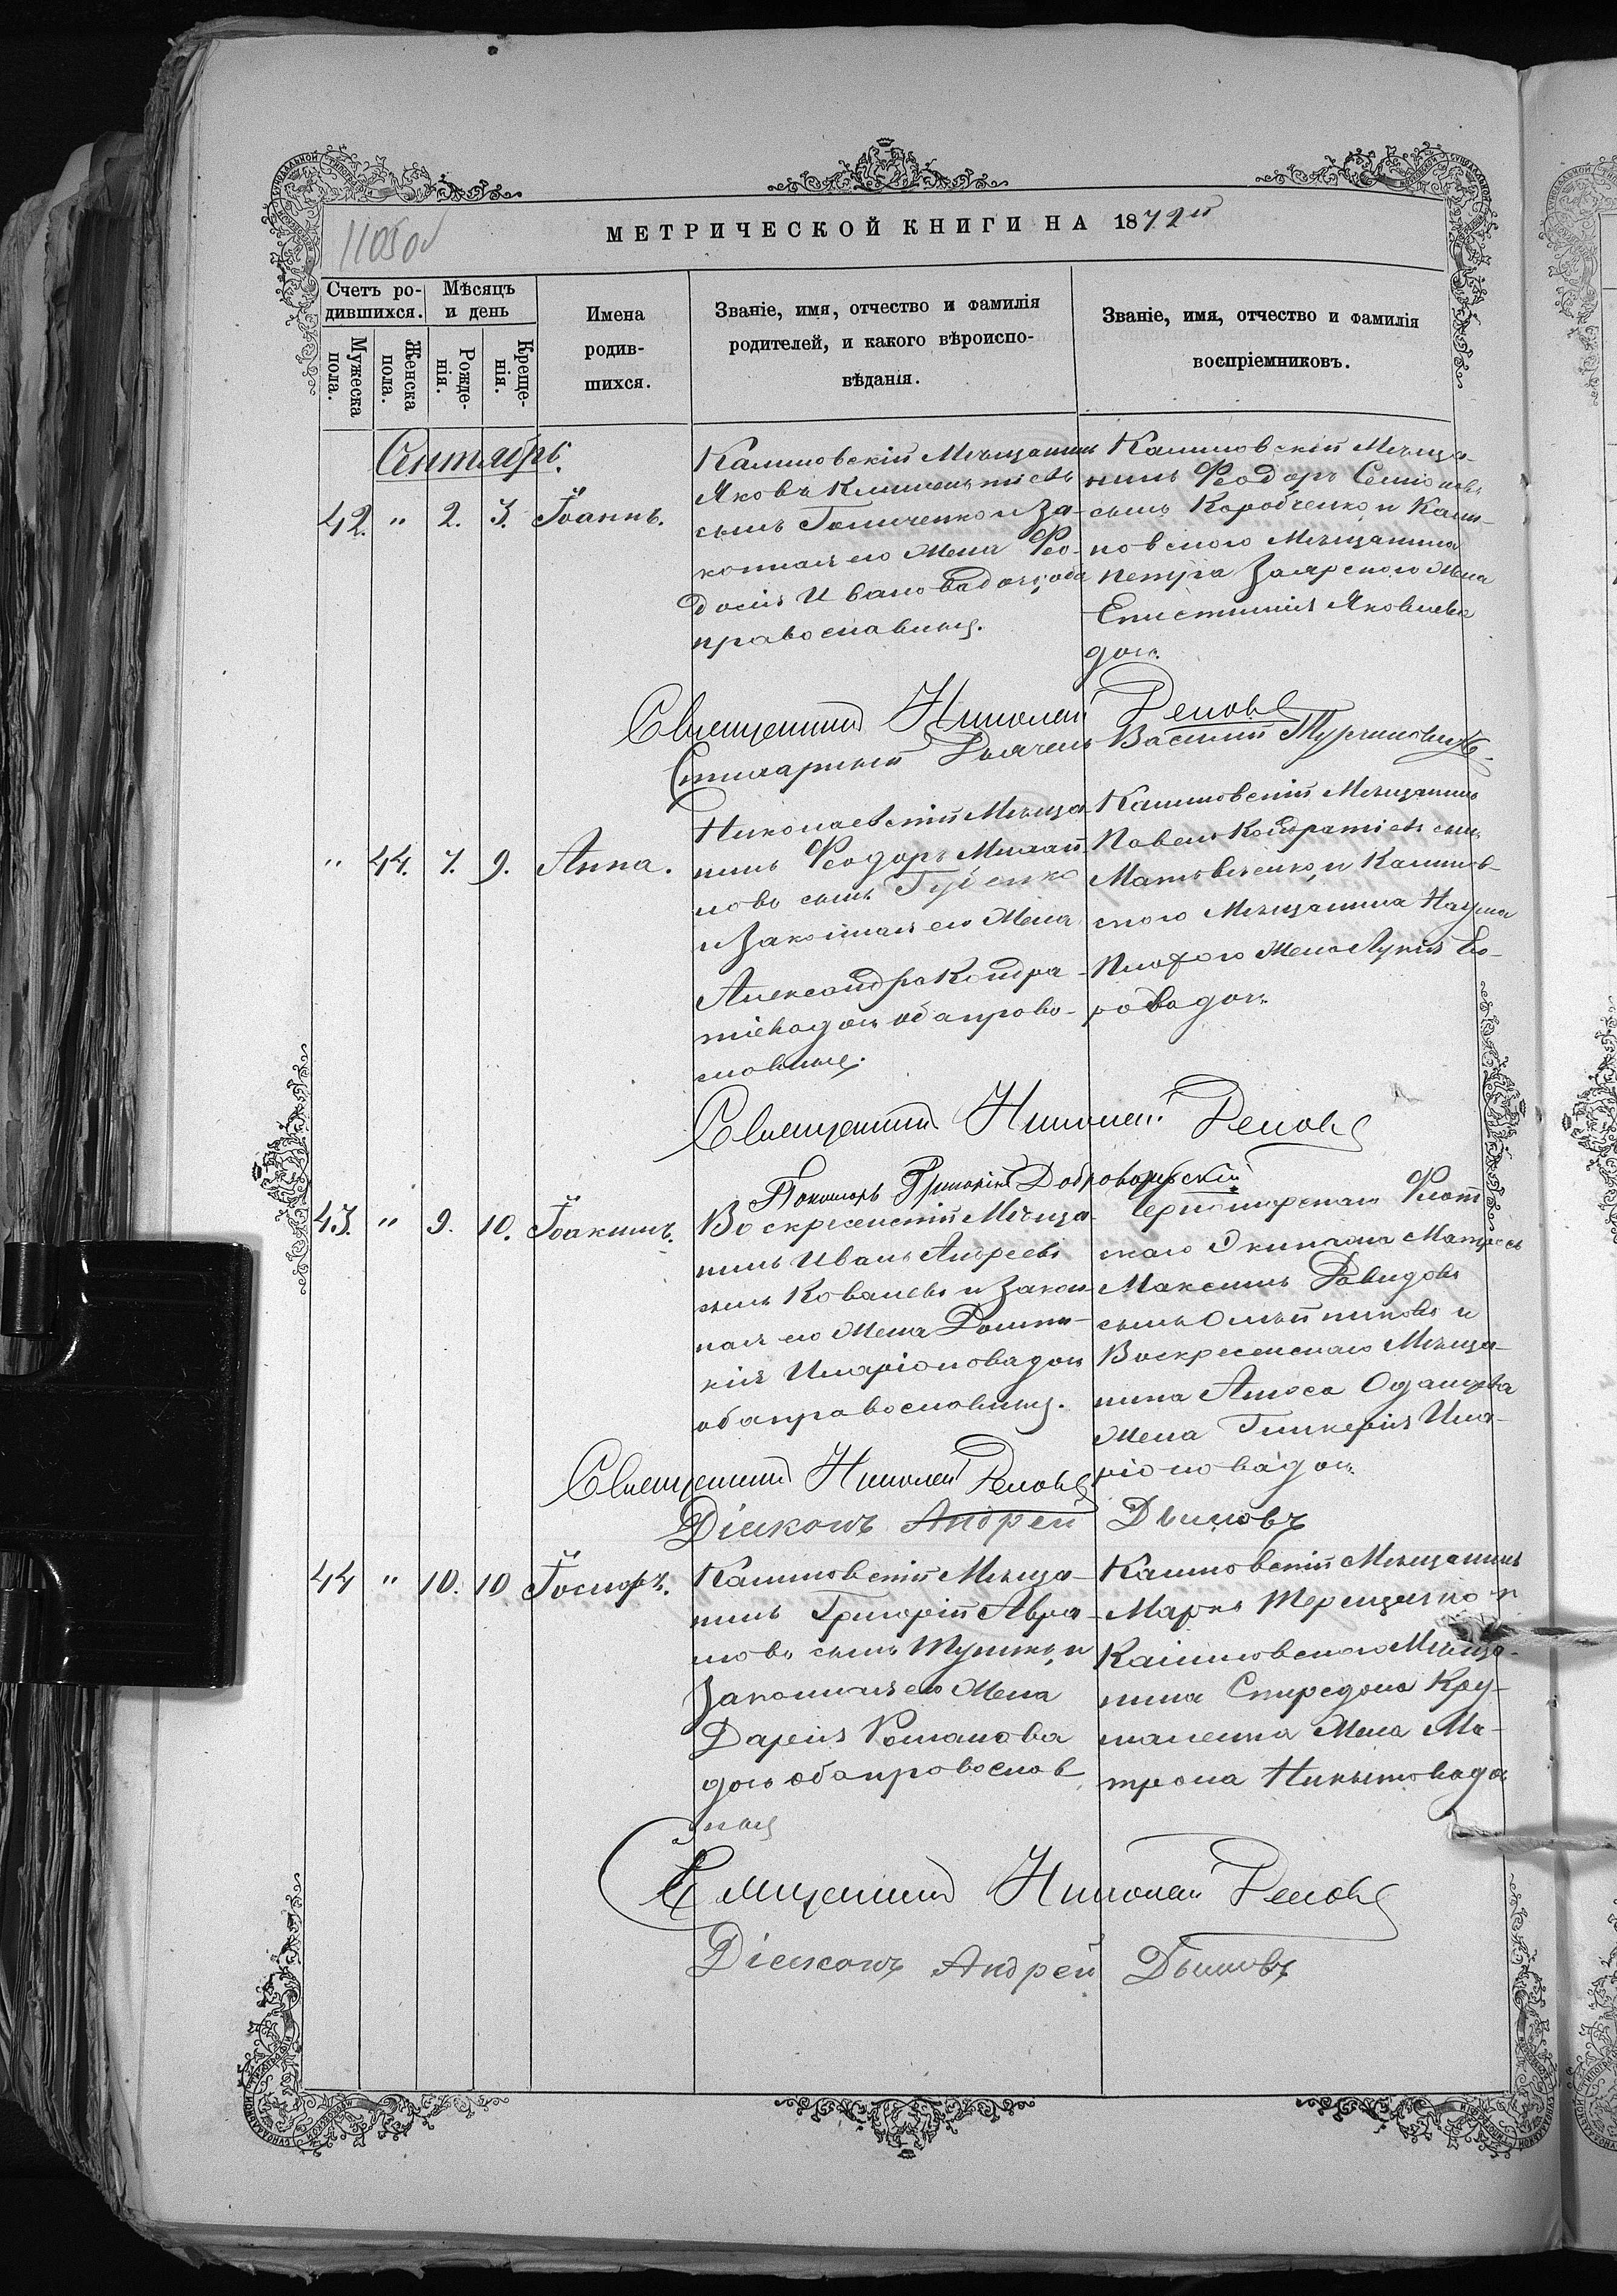 1105об
МЕТРИЧЕСКОЙ КНИГИ НА 1872й
Счетъ ро-
дившихся.
Мѣсяцъ
и день
Мужеска
пола.
Женска
пола.
Рожде-
нія.
Креще-
нія.
Имена
родив-
шихся.
Званіе, имя, отчество и фамилія
родителей, и какого вѣроиспо-
вѣданія.
Званіе, имя, отчество и фамилія
воспріемниковъ.
Сентябрь.
42. " 2. 3. Іоаннъ.
Калиновскій Мѣщанинъ
Яковъ Климентіевъ
сынъ Галиченко и за-
конная его жена Фео-
досія Иванова доч; оба
православныя.
Калиновскій Мѣща-
нинъ Феодоръ Семіоновъ
сынъ Коробченко и Кали-
новского Мѣщанина
Петра Заярского жена
Епистимія Яковлева
доч.
Священникъ Николай Реповъ
Василій
" 44. 7. 9. Анна.
Николаевскій Мѣща-
нинъ Феодоръ Михай-
ловъ сынъ Губенко
и Законная его жена
Александра Кондра-
тіева доч оба право-
славныя.
Калиновскій Мѣщанинъ
Павелъ Кондратіевъ сынъ
Матвѣенко, и Калинов-
ского Мѣщанина Наума
Плохого жена Лукія Его-
рова доч.
Священникъ Николай Реповъ
Пономарь Григорій Добровольскій
43. " 9. 10. Іоакимъ.
Воскресенскій Мѣща-
нинъ Иванъ Андреевъ
сынъ Ковалевъ и Закон-
ная его жена Домни-
кія Иларіонова доч
оба православныя.
Черноморскаго Флот-
скаго Экипажа Матросъ
Максимъ Давидовъ
сынъ Олѣйниковъ и
Воскресенскаго Мѣща-
нина Амоса Оданцева
жена Гликерія Ила-
ріонова доч.
Священникъ Николай Реповъ
Діаконъ Андрей Дымовъ
44 " 10. 10 Іосифъ.
Калиновскій Мѣща-
нинъ Григорій Авра-
мовъ сынъ Тупики, и
Законная его жена
Дарія Романова
доч оба православ
ныя
Калиновскій Мѣщанинъ
Марко Терещенко и
Калиновского Мѣща-
нина Спиредона Кру-
жена Ма-
трона Никитова доч
Священникъ Николай Реповъ
Діаконъ Андрей Дымовъ